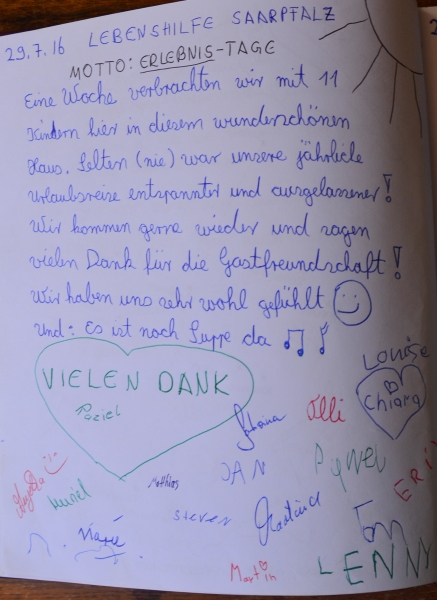 29.7.16 LEBENSHILFE SAARPFALZ
MOTTO: ERLEBNIS-TAGE
Eine Woche verbrachten wir mit 11
Kindern hier in diesem wunderschönen
Haus. Selten (nie) war unsere jährliche
Urlaubsreise entspannter und ausgelassener!
Wir kommen gerne wieder und sagen
vielen Dank für die Gastfreundschaft!
Wir haben uns sehr wohl gefühlt
Und: Es ist noch Suppe da
Louise
VIELEN DANK
Chiara
Olli
JAN
Muriel
Mathias
Steven
Marie
Martin
LENNY